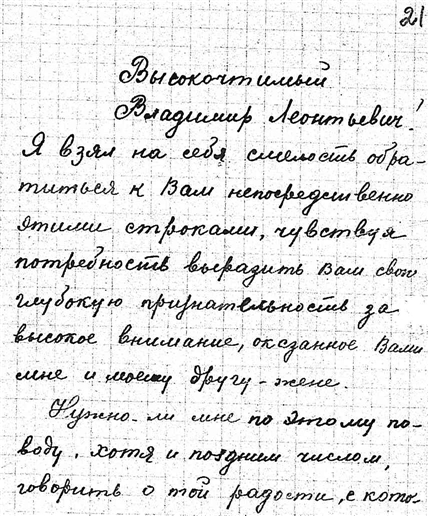 21
Высокочтимый
Владимир Леонтьевич!
Я взял на себя смелость обра-
титься к Вам непосредственно
этими строками, чувствуя
потребность выразить Вам свою
глубокую признательность за
высокое внимание, оказанное Вами
мне и моему другу-жене.
Нужно-ли мне по этому по-
воду, хотя и поздним числом,
говорить о той радости, с кото-